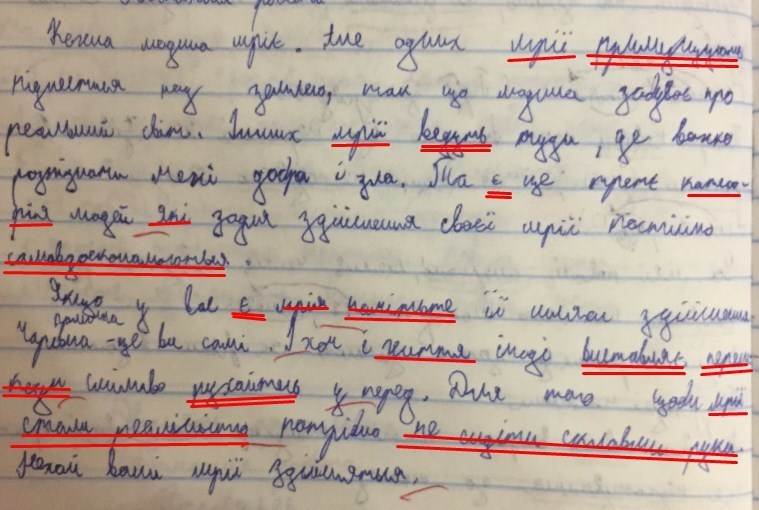 Кожна людина мріє. Але одних мрії примушують
піднестися над землею, так що людина забуває про
реальний світ. Інших мрії ведуть туди, де важко
розпізнати межі добра і зла. Та є ще третє катего-
рія людей які задля здійснення своєї мрії постійно
самовдосконалюються.
Якщо у вас є мрія намітьте її шляхи здійснення.
Чарівна паличка - це ви самі. І хоч і життя іноді виставляє переш-
коди сміливо рухайтесь у перед. Для того щоби мрії
стали реальністю потрібно не сидіти склавши руки.
Нехай ваші мрії здійсняться.